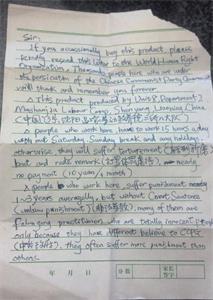 Sir:
If you occassionally buy this product, please
kindly resend this letter to the World Human Right
Organization. Thousands people here who are under
the persicution of the Chinese Communist Party Government
will thank and remember you forever.
This product produced by Unit 8, Department 2,
Mashanjia Labour Camp, Shenyang, Liaoning, China
(中国,辽宁,沈阳,
People who work here, have to work 15 hours a day
with out Saturday, Sunday break and any holidays,
otherwise, they will suffer torturement
beat and rude remark nearly
no payment (10 yuan / month)
People who work here, suffer punishment nearly
1~3 years averagelly, but without Court Sentence
many of them are
Falun gong practitioner, who are totally innocent people
only because they have different believe to CCPG
they often suffer more punishment than
others.
年 月 日